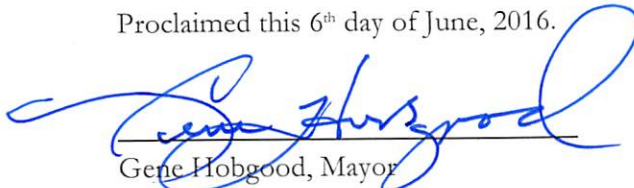 Proclaimed this 6th day of June, 2016.
Gene Hobgood
Gene Hobgood, Mayor